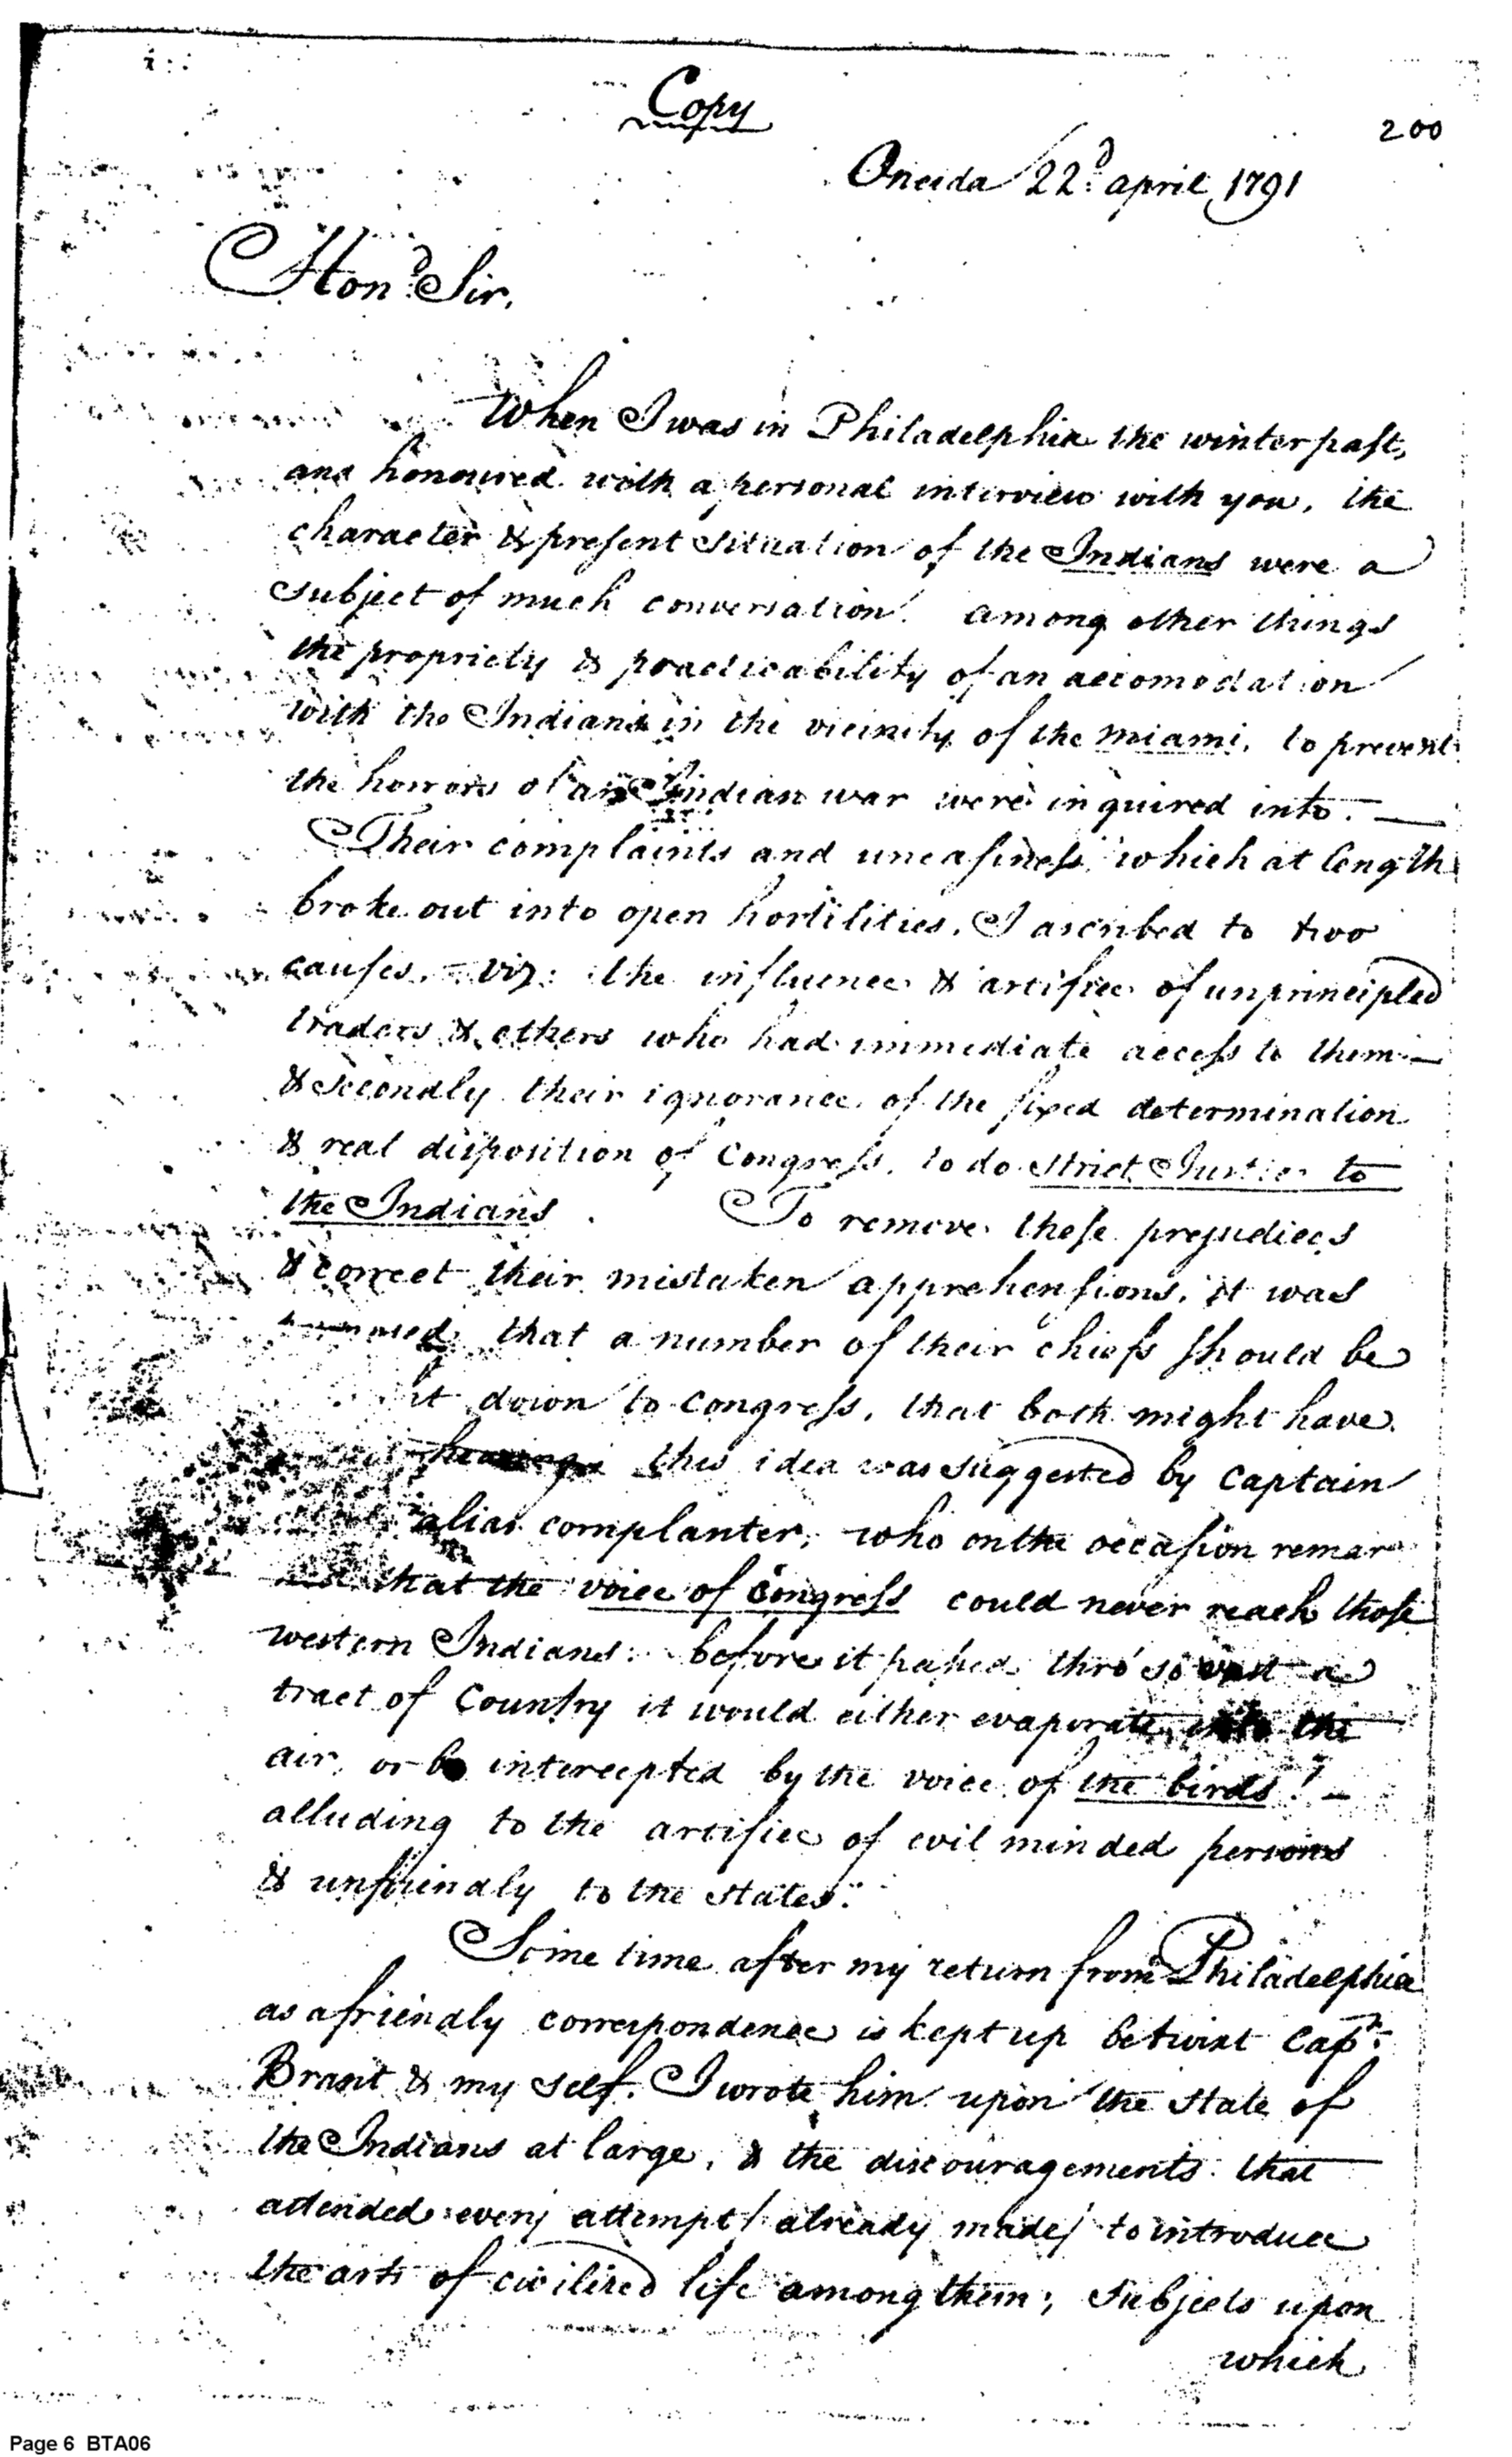 Copy
200
Oneida 22d. april 1791
Hond. Sir,
When I was in Philadelphia the winter past,
and honoured with a personal interview with you, the
character & present situation of the Indians were a
subject of much conversation. among other things
the propriety & practicability of an accomodation
with the Indians in the vicinity of the Miami, to prevent
the horrors of an Indian war were inquired into. —
Their complaints and uneasiness, which at length
broke out into open hostilities, I ascribed to two
causes. – viz: the influence & artifice of unprincipled
traders & others who had immediate access to them —
& secondly their ignorance of the fixed determination
& real disposition of Congress, to do strict Justice to
the Indians. To remove these prejudices
& correct their mistaken apprehensions, it was
that a number of their chiefs should be
down to Congress, that both might have
this idea was suggested by Captain
alias cornplanter, who on the occasion remar
that the voice of Congress could never reach those
western Indians: before it passed thro' so vast a
tract of Country it would either evaporate into the
air, or be intercepted by the voice of the birds! –
alluding to the artifice of evil minded persons
& unfriendly to the States.
Some time after my return from Philadelphia
as a friendly correspondence is kept up betwixt Capn.
Brant & my self. I wrote him upon the state of
the Indians at large, & the discouragements that
attended every attempt (already made) to introduce
the arts of civilized life among them; subjects upon
which
Page 6 BTA06